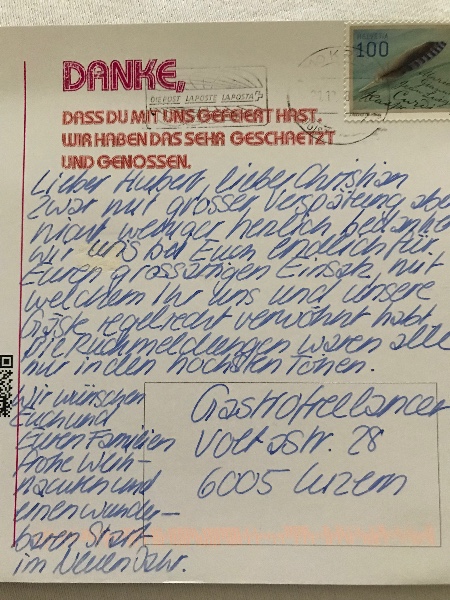 HELVETIA
100
DIE POST LA POSTE LA POSTA
DANKE,
DASS DU MIT UNS GEFEIERT HAST.
WIR HABEN DAS SEHR GESCHAETZT
UND GENOSSEN.
Lieber Hubert, lieber Christian
Zwar mit grosser Verspätung abe
nicht weniger herzlich bedanke
wir uns bei Euch endlich für
Euren grossartigen Einsatz, mit
welchem Ihr uns und unsere
Gäste regelrecht verwöhnt habt
Die Rückmeldungen waren alle
nur in den höchsten Tönen.
Wir wünschen
Euch und
Euren Familien
frohe Weih-
nachten und
einen wunder-
baren Start
im Neuen Jahr.
Gastrofreelancer
Voltastr. 28
6005 Luzern